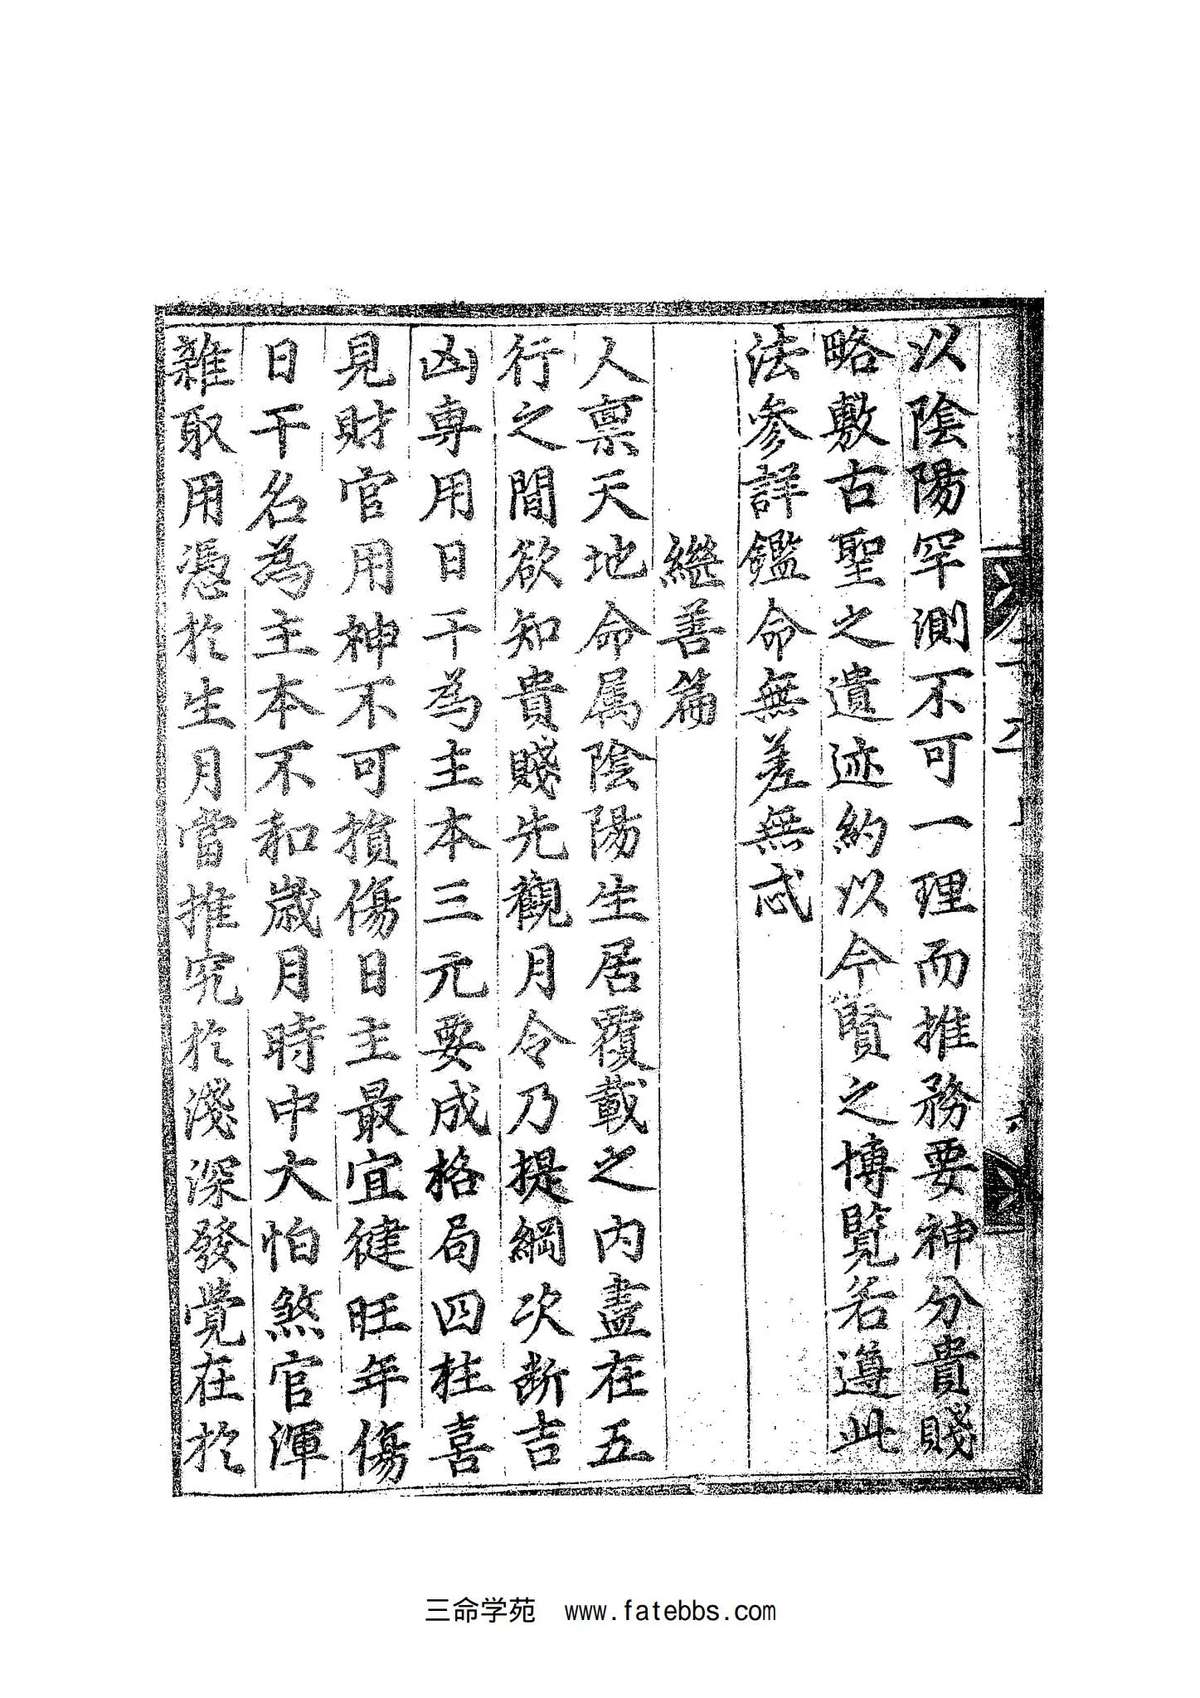 以陰陽罕測不可一理而推務要神分貴賤
略敷古聖之遺迹約以今賢之博覽若遵此
法參詳鑑命無差無忒
繼善篇
人禀天地命属陰陽生居覆載之内盡在五
行之間欲知貴賤先觀月令乃提綱次断吉
凶専用日干為主本三元要成格局四柱喜
見財官用神不可損傷日主最宜健旺年傷
日干名為主本不和歲月時中大怕煞官渾
雜取用憑於生月當推究於淺深發覺在於
三命学苑 www.fatebbs.com